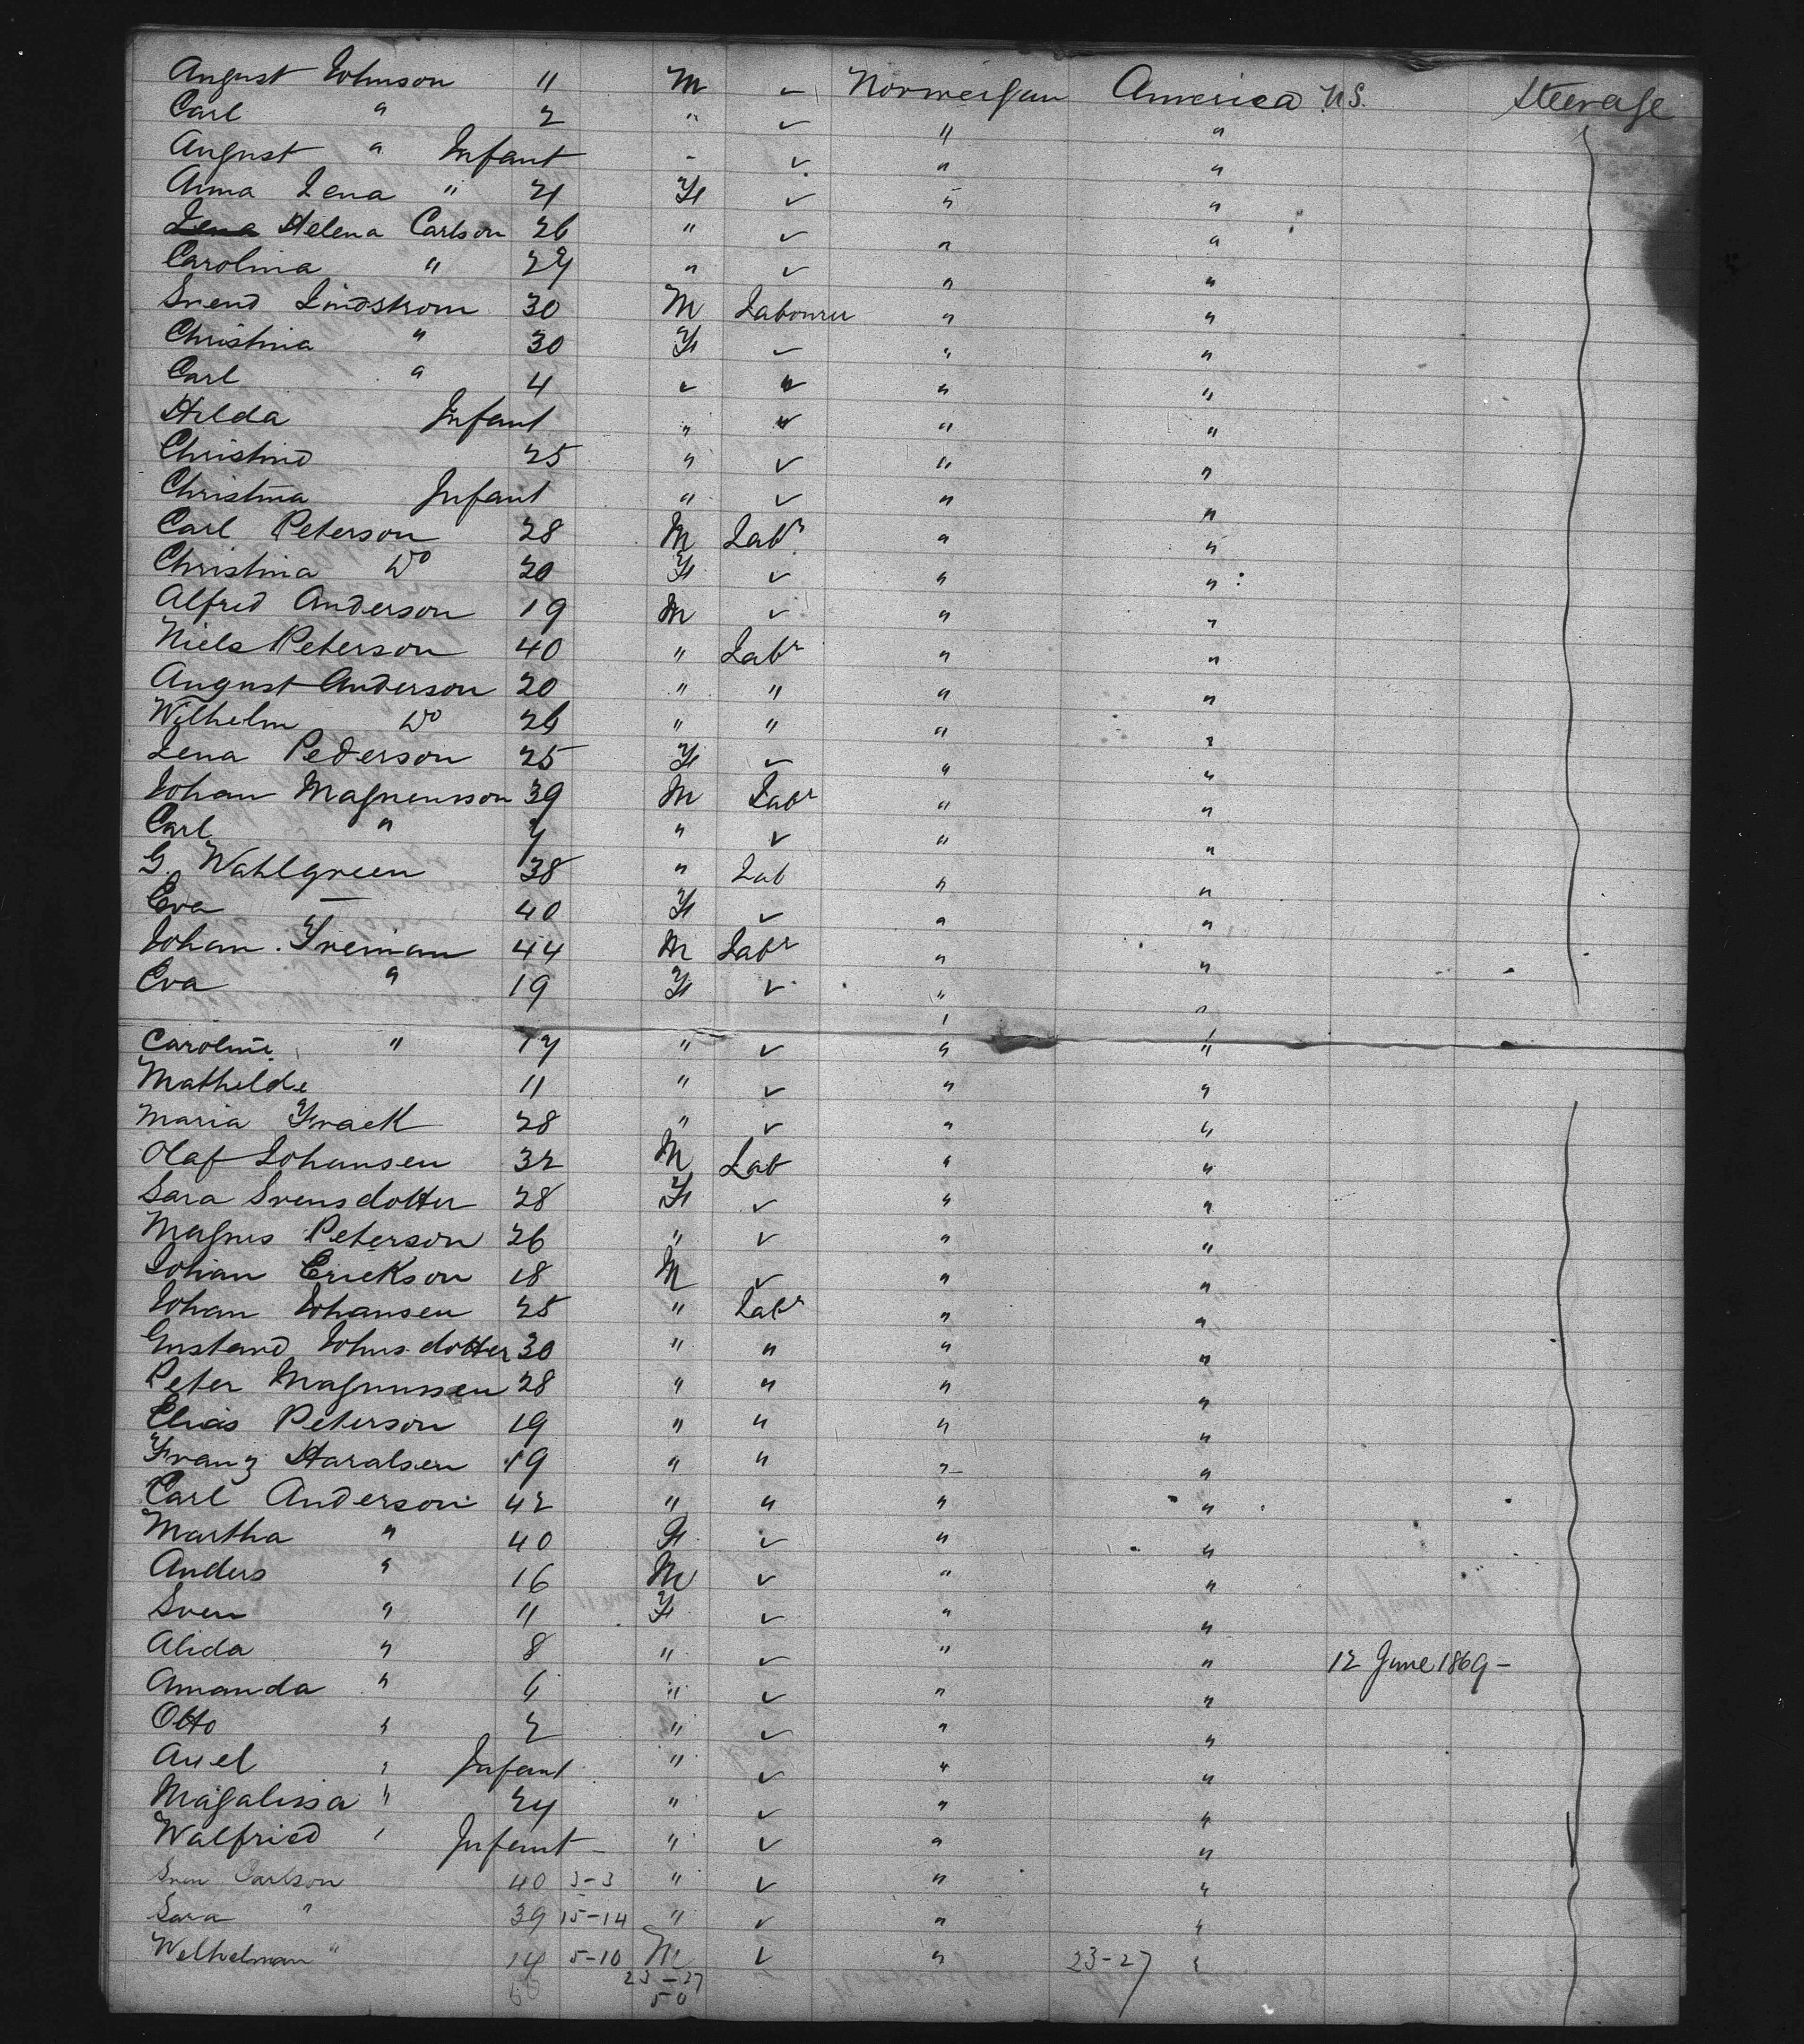 August Johnson 11 M ✓ Norweigan America U.S. Steerage
Carl " 2 " ✓ " "
August " Infant " ✓ " "
Anna Lena " 21 F ✓ " "
Helena Carlson 26 " ✓ " "
Carolina " 27 " ✓ " "
Svend Lindstrom 30 M Labourer " "
Christina " 30 F ✓ " "
Carl " 4 ✓ ✓ " "
Hilda Infant " ✓ " "
Christina 25 " ✓ " "
Christina Infant " ✓ " "
Carl Peterson 28 M Labr " "
Christina Do 20 F ✓ " "
Alfred Anderson 19 M ✓ " "
Niels Peterson 40 " Labr " "
August Anderson 20 " " " "
Wilhelm Do 26 " " " "
Lena Pederson 25 F ✓ " "
Johan Magnensson 39 M Labr " "
Carl " 7 " ✓ " "
G. Wahlgreen 38 " Lab " "
Eva — 40 F ✓ " "
Johan Freiman 44 M Labr " "
Eva " 19 F ✓ " "
Caroline " 17 " ✓ " "
Mathilde 11 " ✓ " "
Maria Frack 28 " ✓ " "
Olaf Johansen 32 M Lab " "
Sara Svensdotter 28 F ✓ " "
Magnus Peterson 26 " ✓ " "
Johan Erickson 18 M ✓ " "
Johan Johansen 25 " Labr " "
Gustand Johnsdotter 30 " " " "
Peter Magnussen 28 " " " "
Elias Peterson 19 " " " "
Franz Haralsen 19 " " " "
Carl Anderson 42 " " " "
Martha " 40 F ✓ " "
Anders " 16 M ✓ " "
Sven " 11 F ✓ " "
Alida " 8 " ✓ " " 12 June 1869 -
Amanda " 6 " ✓ " "
Otto " 2 " ✓ " "
Axel " Infant " ✓ " "
Magalissa " 24 " ✓ " "
Walfried " Infant " ✓ " "
Sven Carlson 40 3-3 " ✓ " "
Sara " 39 15-14 " ✓ " "
Welhelman " 14 5-10 M ✓ " 23-27 "
23-27
50